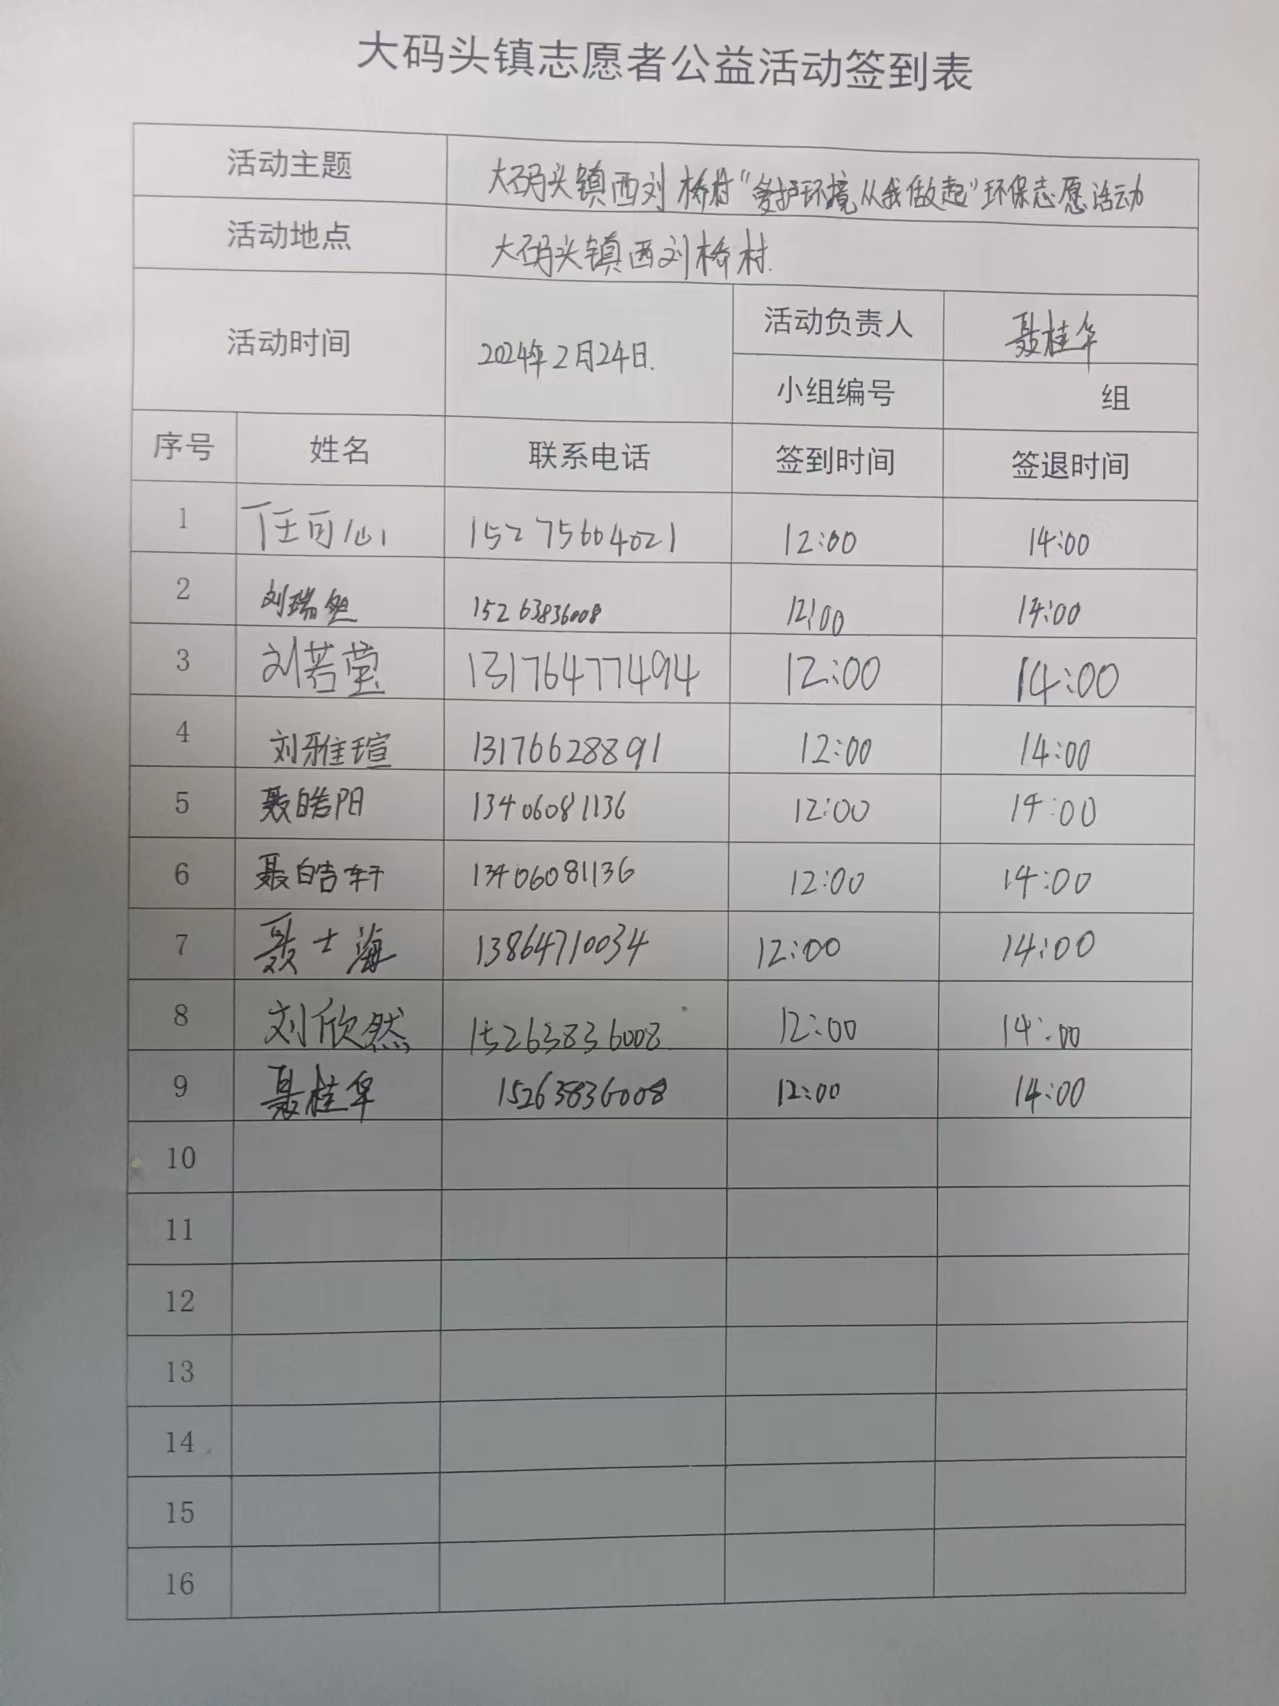 大码头镇志愿者公益活动签到表
活动主题 大码头镇西刘桥村“爱护环境从我做起”环保志愿活动
活动地点 大码头镇西刘桥村.
活动时间 2024年2月24日. 活动负责人 聂桂华
小组编号 组
序号 姓名 联系电话 签到时间 签退时间
1 任可心 15275604021 12:00 14:00
2 刘瑞 15263836008 12:00 14:00
3 刘若莹 13176477494 12:00 14:00
4 刘雅瑄 13176628891 12:00 14:00
5 聂皓阳 13406081136 12:00 14:00
6 聂皓轩 13406081136 12:00 14:00
7 聂士海 13864710034 12:00 14:00
8 刘欣然 15263836008 12:00 14:00
9 聂桂华 15263836008 12:00 14:00
10
11
12
13
14
15
16